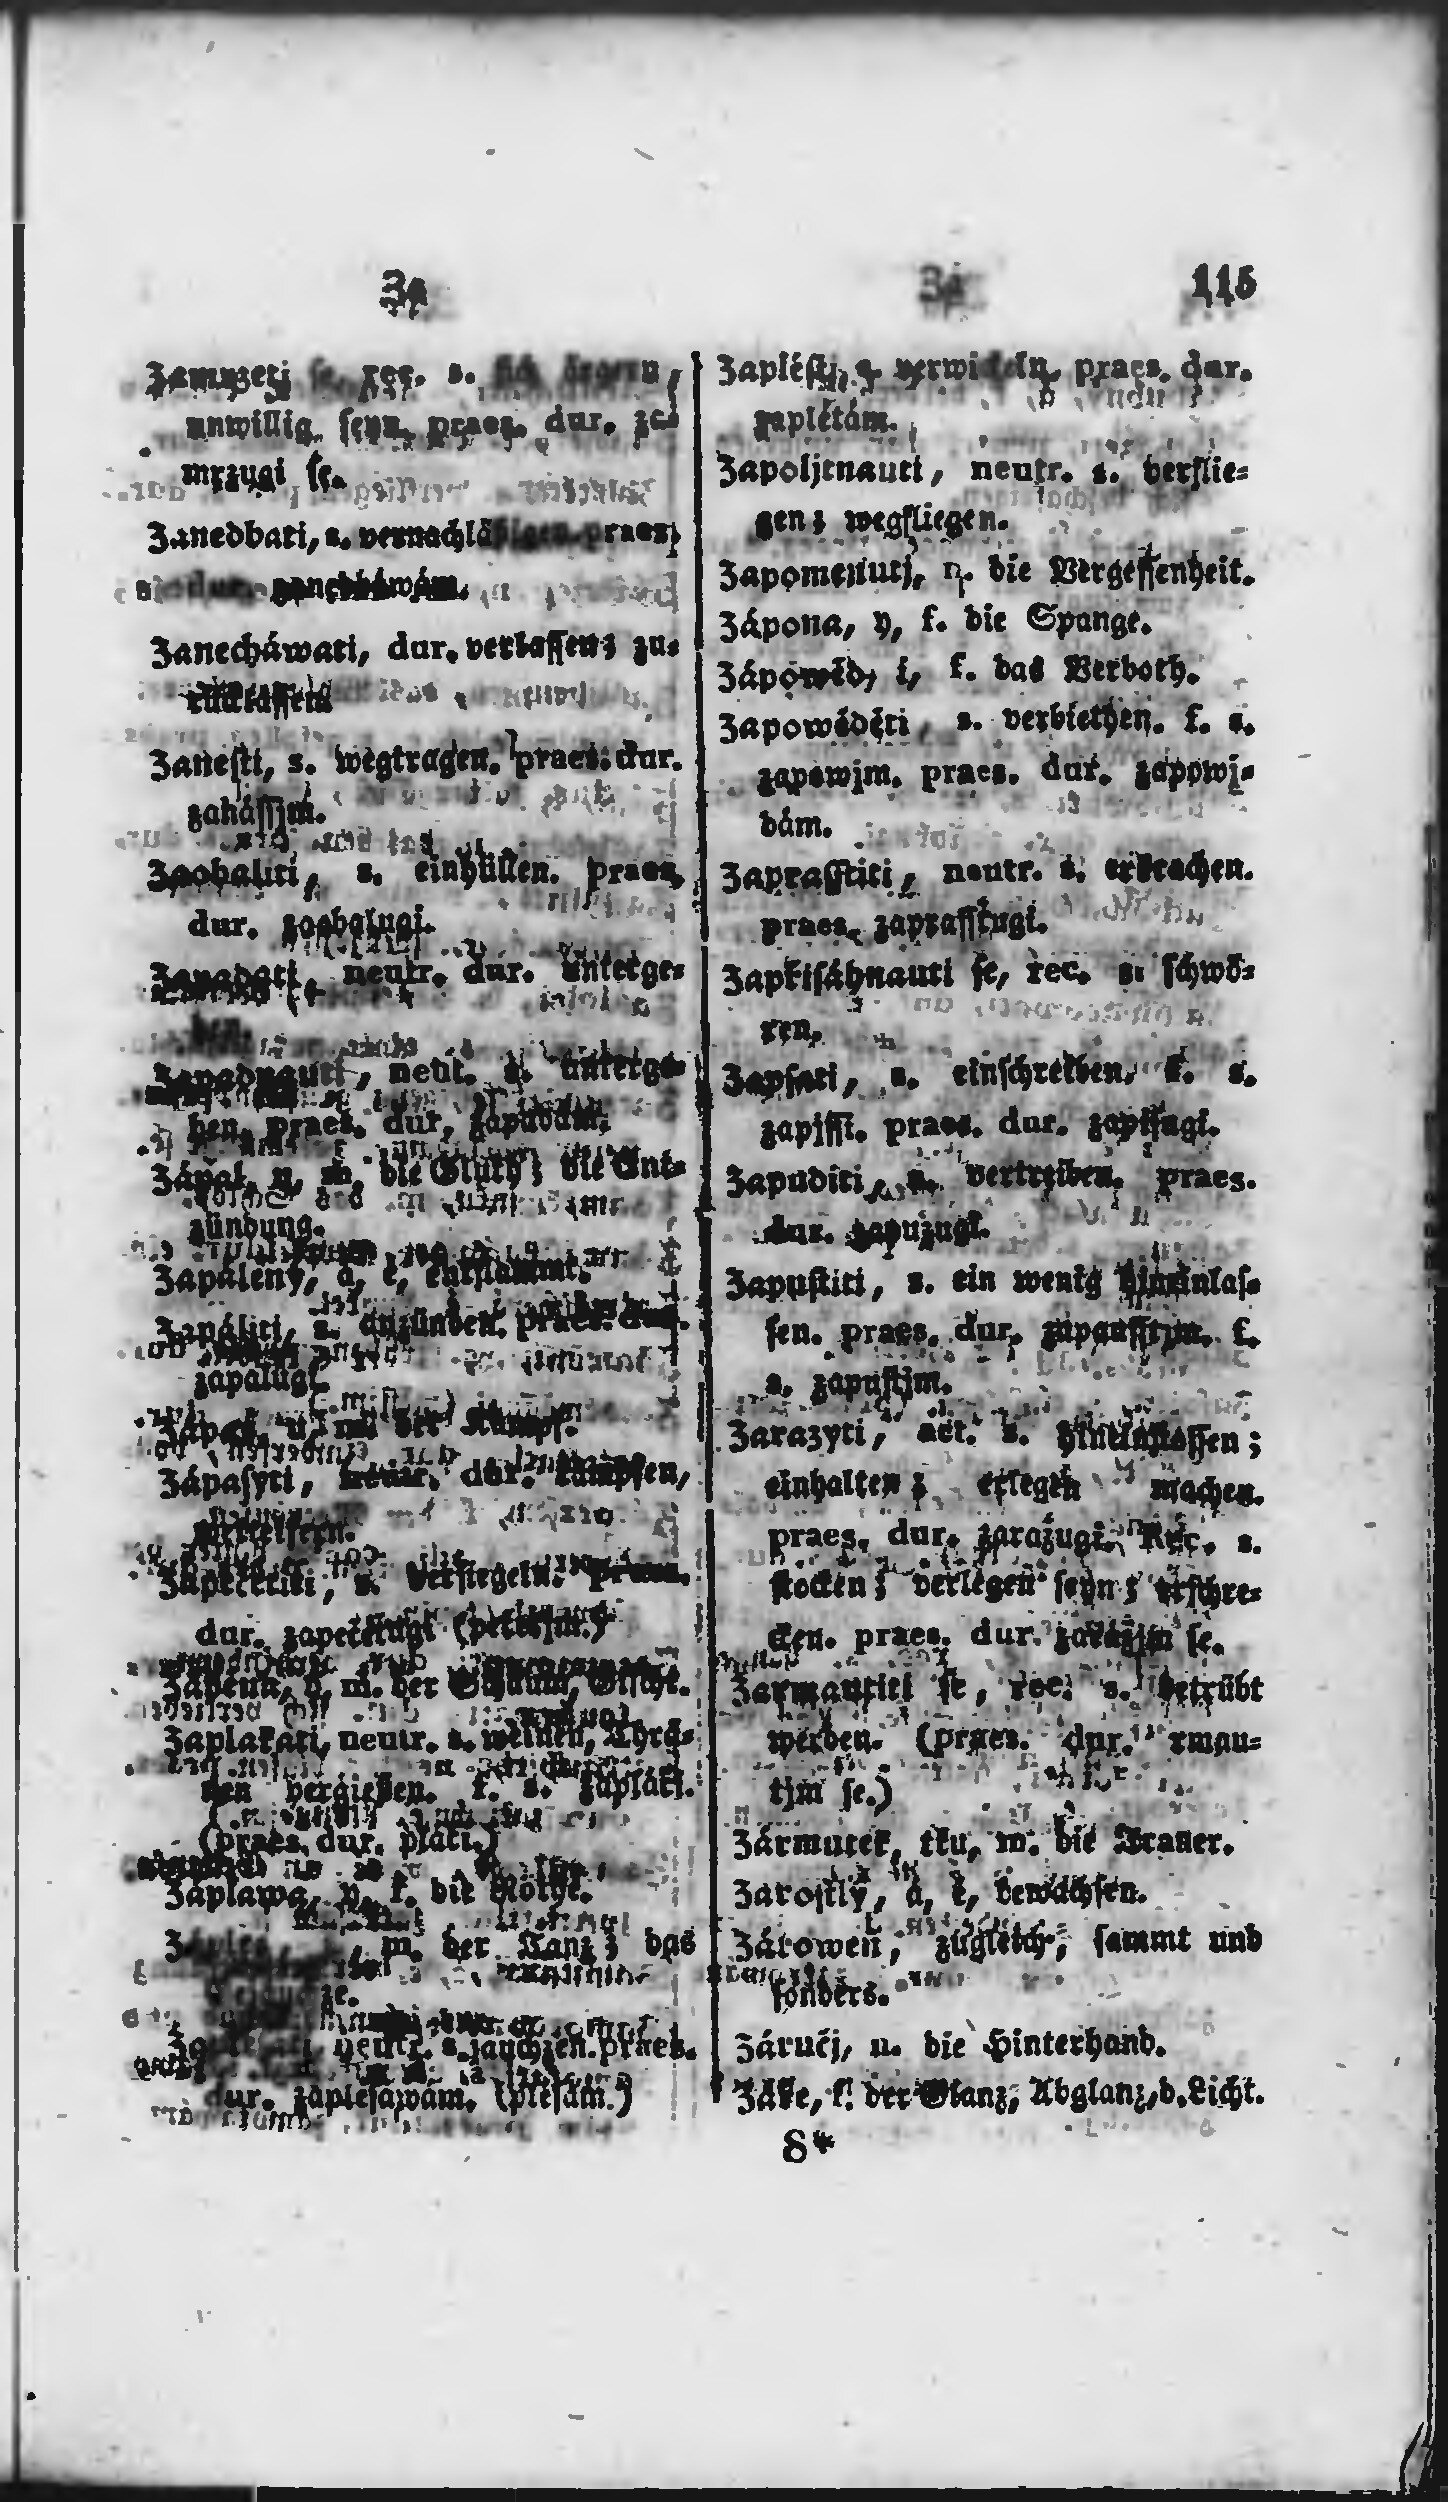 Za
Za 115
Zamrzeti se, rec. s. sich ärgern,
unwillig seyn. praes. dur. za-
mrzugi se.
Zanedbati, s. vernachläßigen. praes.
dur. zanedbáwám.
Zanecháwati, dur. verlassen; zu-
rücklassen
Zanesti, s. wegtragen. praes. dur.
zanássjm.
Zaobaliti, s. einhüllen. praes.
dur. zaobalugi.
Zapadati, neutr. dur. unterge-
hen.
Zapadnauti, neut. s. unterge-
hen. praes. dur. zapadám.
Zápal, u, m. die Gluth; die Ent-
zündung.
Zapálený, á, é, entflammt.
Zapáliti, s. anzünden. praes. dur.
zapalugi.
Zápas, u, m. der Kampf.
Zápasyti, neutr. dur. kämpfen,
wetteifern.
Zapečetiti, s. versiegeln. praes.
dur. zapečetugi (pečetjm.)
m. der Gischt.
Zaplakati, neutr. s. weinen, Thrä-
nen vergießen. f. s. zapláči.
(praes. dur. pláči.)
Zaplawa, y, f. die Röthe.
m. der Tanz; das
neutr. s. jauchzen. praes.
dur. zaplesáwám. (plesám.)
Zaplésti, s. verwickeln. praes. dur.
zaplétám.
Zapoljtnauti, neutr. s. verflie-
gen; wegfliegen.
Zapomenutj, n. die Vergessenheit.
Zápona, y, f. die Spange.
Zápowěd, i, f. das Verboth.
Zapowěděti, s. verbiethen. f. s.
zapowjm. praes. dur. zapowj-
dám.
Zaprasstiti, neutr. s. erkrachen.
praes. zaprasstugi.
Zapřisáhnauti se, rec. s. schwö-
ren.
Zapsati, s. einschreiben. f. s.
zapjssi. praes. dur. zapisugi.
Zapuditi, s. vertreiben. praes.
dur. zapuzugi.
Zapustiti, s. ein wenig hineinlas-
sen. praes. dur. zapausstjm. f.
s. zapustjm.
Zarazyti, act. s. hineinstossen;
einhalten; erlegen machen.
praes. dur. zarážugi. Rec. s.
stocken; verlegen seyn; erschre-
cken. praes. dur. zarážjm se.
Zarmautiti se, rec. s. betrübt
werben. (praes. dur. rmau-
tjm se.)
Zármutek, tku, m. die Trauer.
Zarostlý, á, é, bewachsen.
Zároweň, zugleich, sammt und
sonders.
Záručj, n. die Hinterhand.
Záře, f. der Glanz, Abglanz, d. Licht.
8*